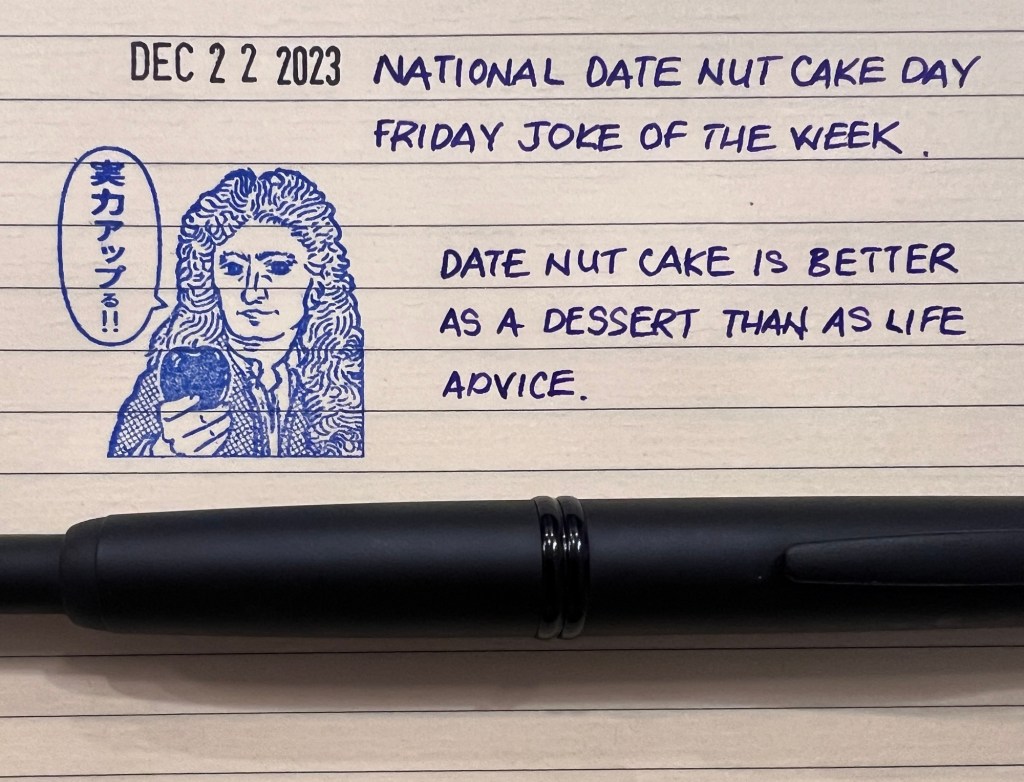 DEC 22 2023 NATIONAL DATE NUT CAKE DAY
FRIDAY JOKE OF THE WEEK.
実力アップる!!
DATE NUT CAKE IS BETTER
AS A DESSERT THAN AS LIFE
ADVICE.